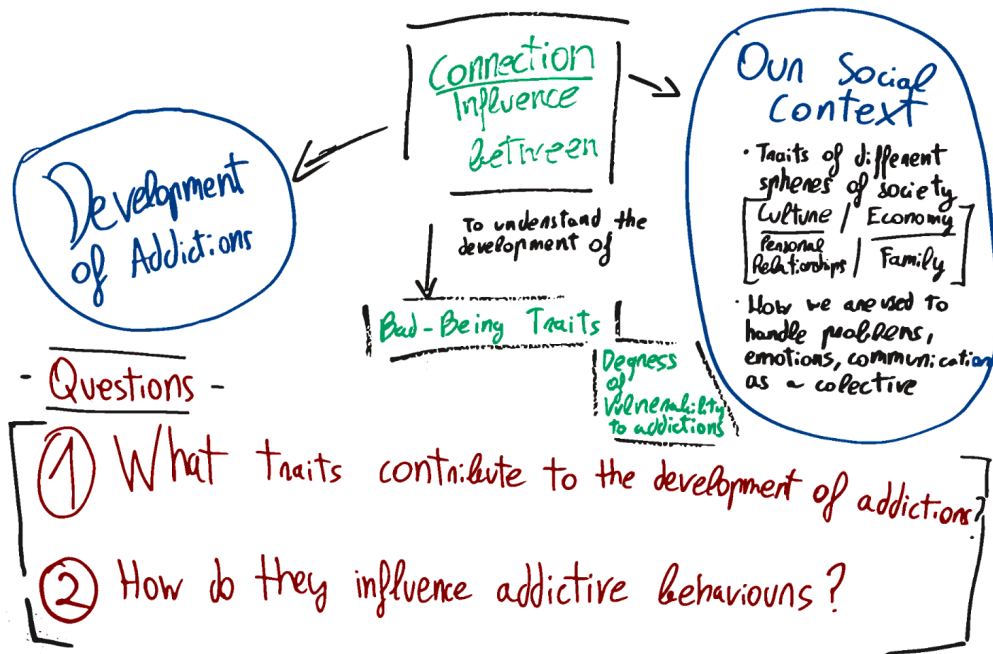 Connection
Influence
between
Our Social
Context
• Traits of different
spheres of society
Culture / Economy
Personal
Relationships / Family
• How we are used to
handle problems,
emotions, communication
as a colective
Development
of Addictions
To understand the
development of
Bad-Being Traits
Degress
of
Vulnerability
to addictions
- Questions -
1 What traits contribute to the development of addictions?
2 How do they influence addictive behaviours?